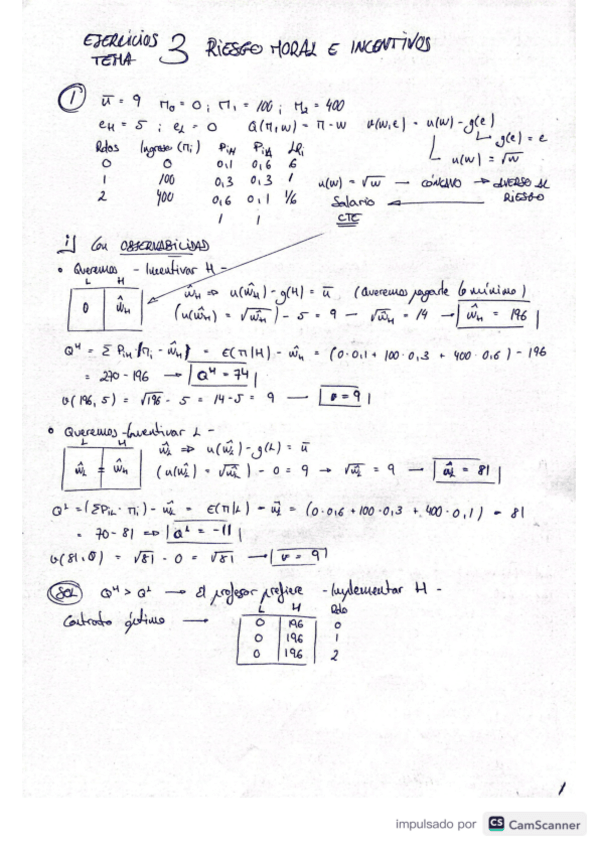 EJERCICIOS TEMA 3 RIESGO MORAL E INCENTIVOS
① ū = 9 π₀ = 0 ; π₁ = 100 ; π₂ = 400
e_H = 5 ; e_L = 0 Q(π,w) = π - w v(w,e) = u(w) - g(e)
g(e) = e
u(w) = √w
Rdos Ingreso (πi) PiH PiL LRi
0 0 0,1 0,6 6
1 100 0,3 0,3 1
2 400 0,6 0,1 1/6
1 1
u(w) = √w — CÓNCAVO → ADVERSO AL RIESGO
Salario CTE
i) Con OBSERVABILIDAD
• Queremos - Incentivar H -
L H
0 ŵH
ŵH ⇒ u(ŵH) - g(H) = ū (Queremos pagarle lo mínimo)
(u(ŵH) = √ŵH) - 5 = 9 — √ŵH = 14 → ŵH = 196
Q^H = Σ PiH (πi - ŵH) = E(π|H) - ŵH = (0·0,1 + 100·0,3 + 400·0,6) - 196
= 270 - 196 → Q^H = 74
v(196, 5) = √196 - 5 = 14 - 5 = 9 → v = 9
• Queremos - Incentivar L -
L H
ŵL = ŵH
ŵL ⇒ u(ŵL) - g(L) = ū
(u(ŵL) = √ŵL) - 0 = 9 → √ŵL = 9 → ŵL = 81
Q^L = (ΣPiL · πi) - ŵL = E(π|L) - ŵL = (0·0,6 + 100·0,3 + 400·0,1) - 81
= 70 - 81 ⇒ Q^L = -11
v(81,0) = √81 - 0 = √81 → v = 9
SOL Q^H > Q^L → El profesor prefiere - Implementar H -
Contrato óptimo →
L H Rdo
0 196 0
0 196 1
0 196 2
1
impulsado por CS CamScanner